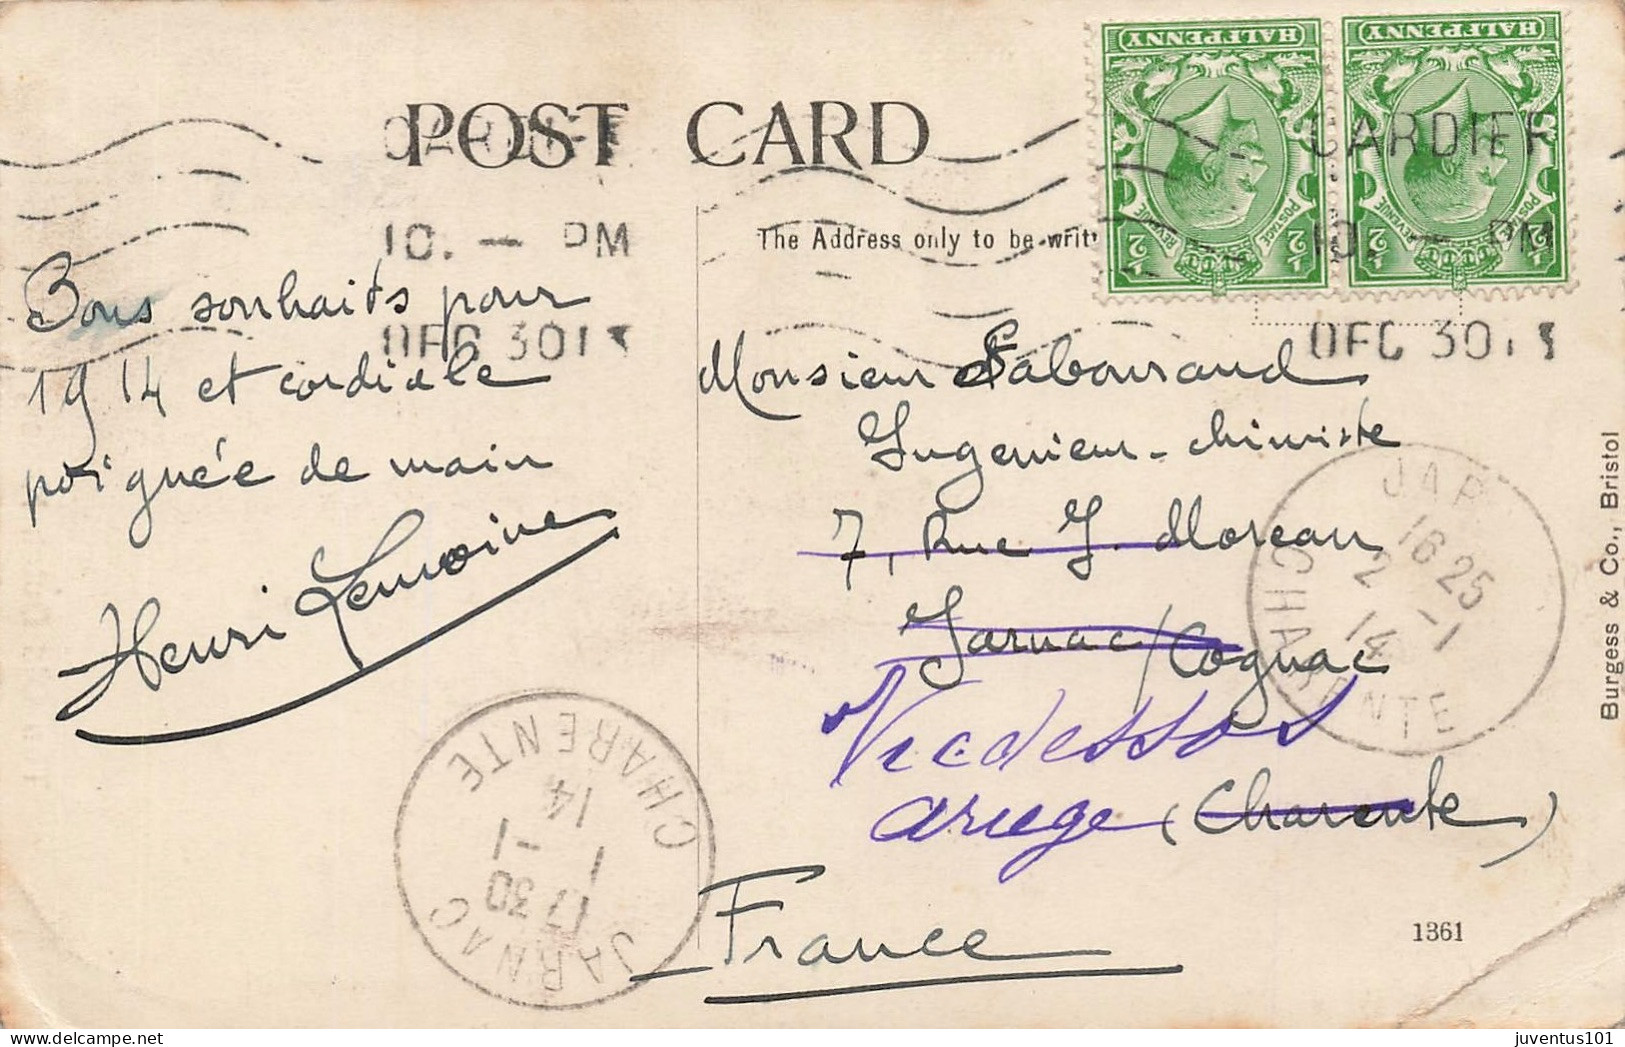 POST CARD
CARDIFF
10. — PM
DEC 30 13
HALFPENNY
HALFPENNY
POSTAGE
REVENUE
½
½
POSTAGE
REVENUE
½
½
The Address only to be writ
Bons souhaits pour
1914 et cordiale
poignée de main
Henri Lemoine
Monsieur Sabouraud
Ingenieur-chimiste
7, Rue J. Moreau
Jarnac/Cognac
Vicdessos
Ariege (Charente)
France
JARNAC
17 30
1 -1
14
CHARENTE
JAR
16 25
2 -1
14
CHARENTE
Burgess & Co., Bristol
1361
www.delcampe.net
juventus101